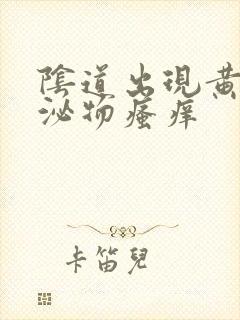 陰道出現黃
泌物瘙痒
卡笛兒